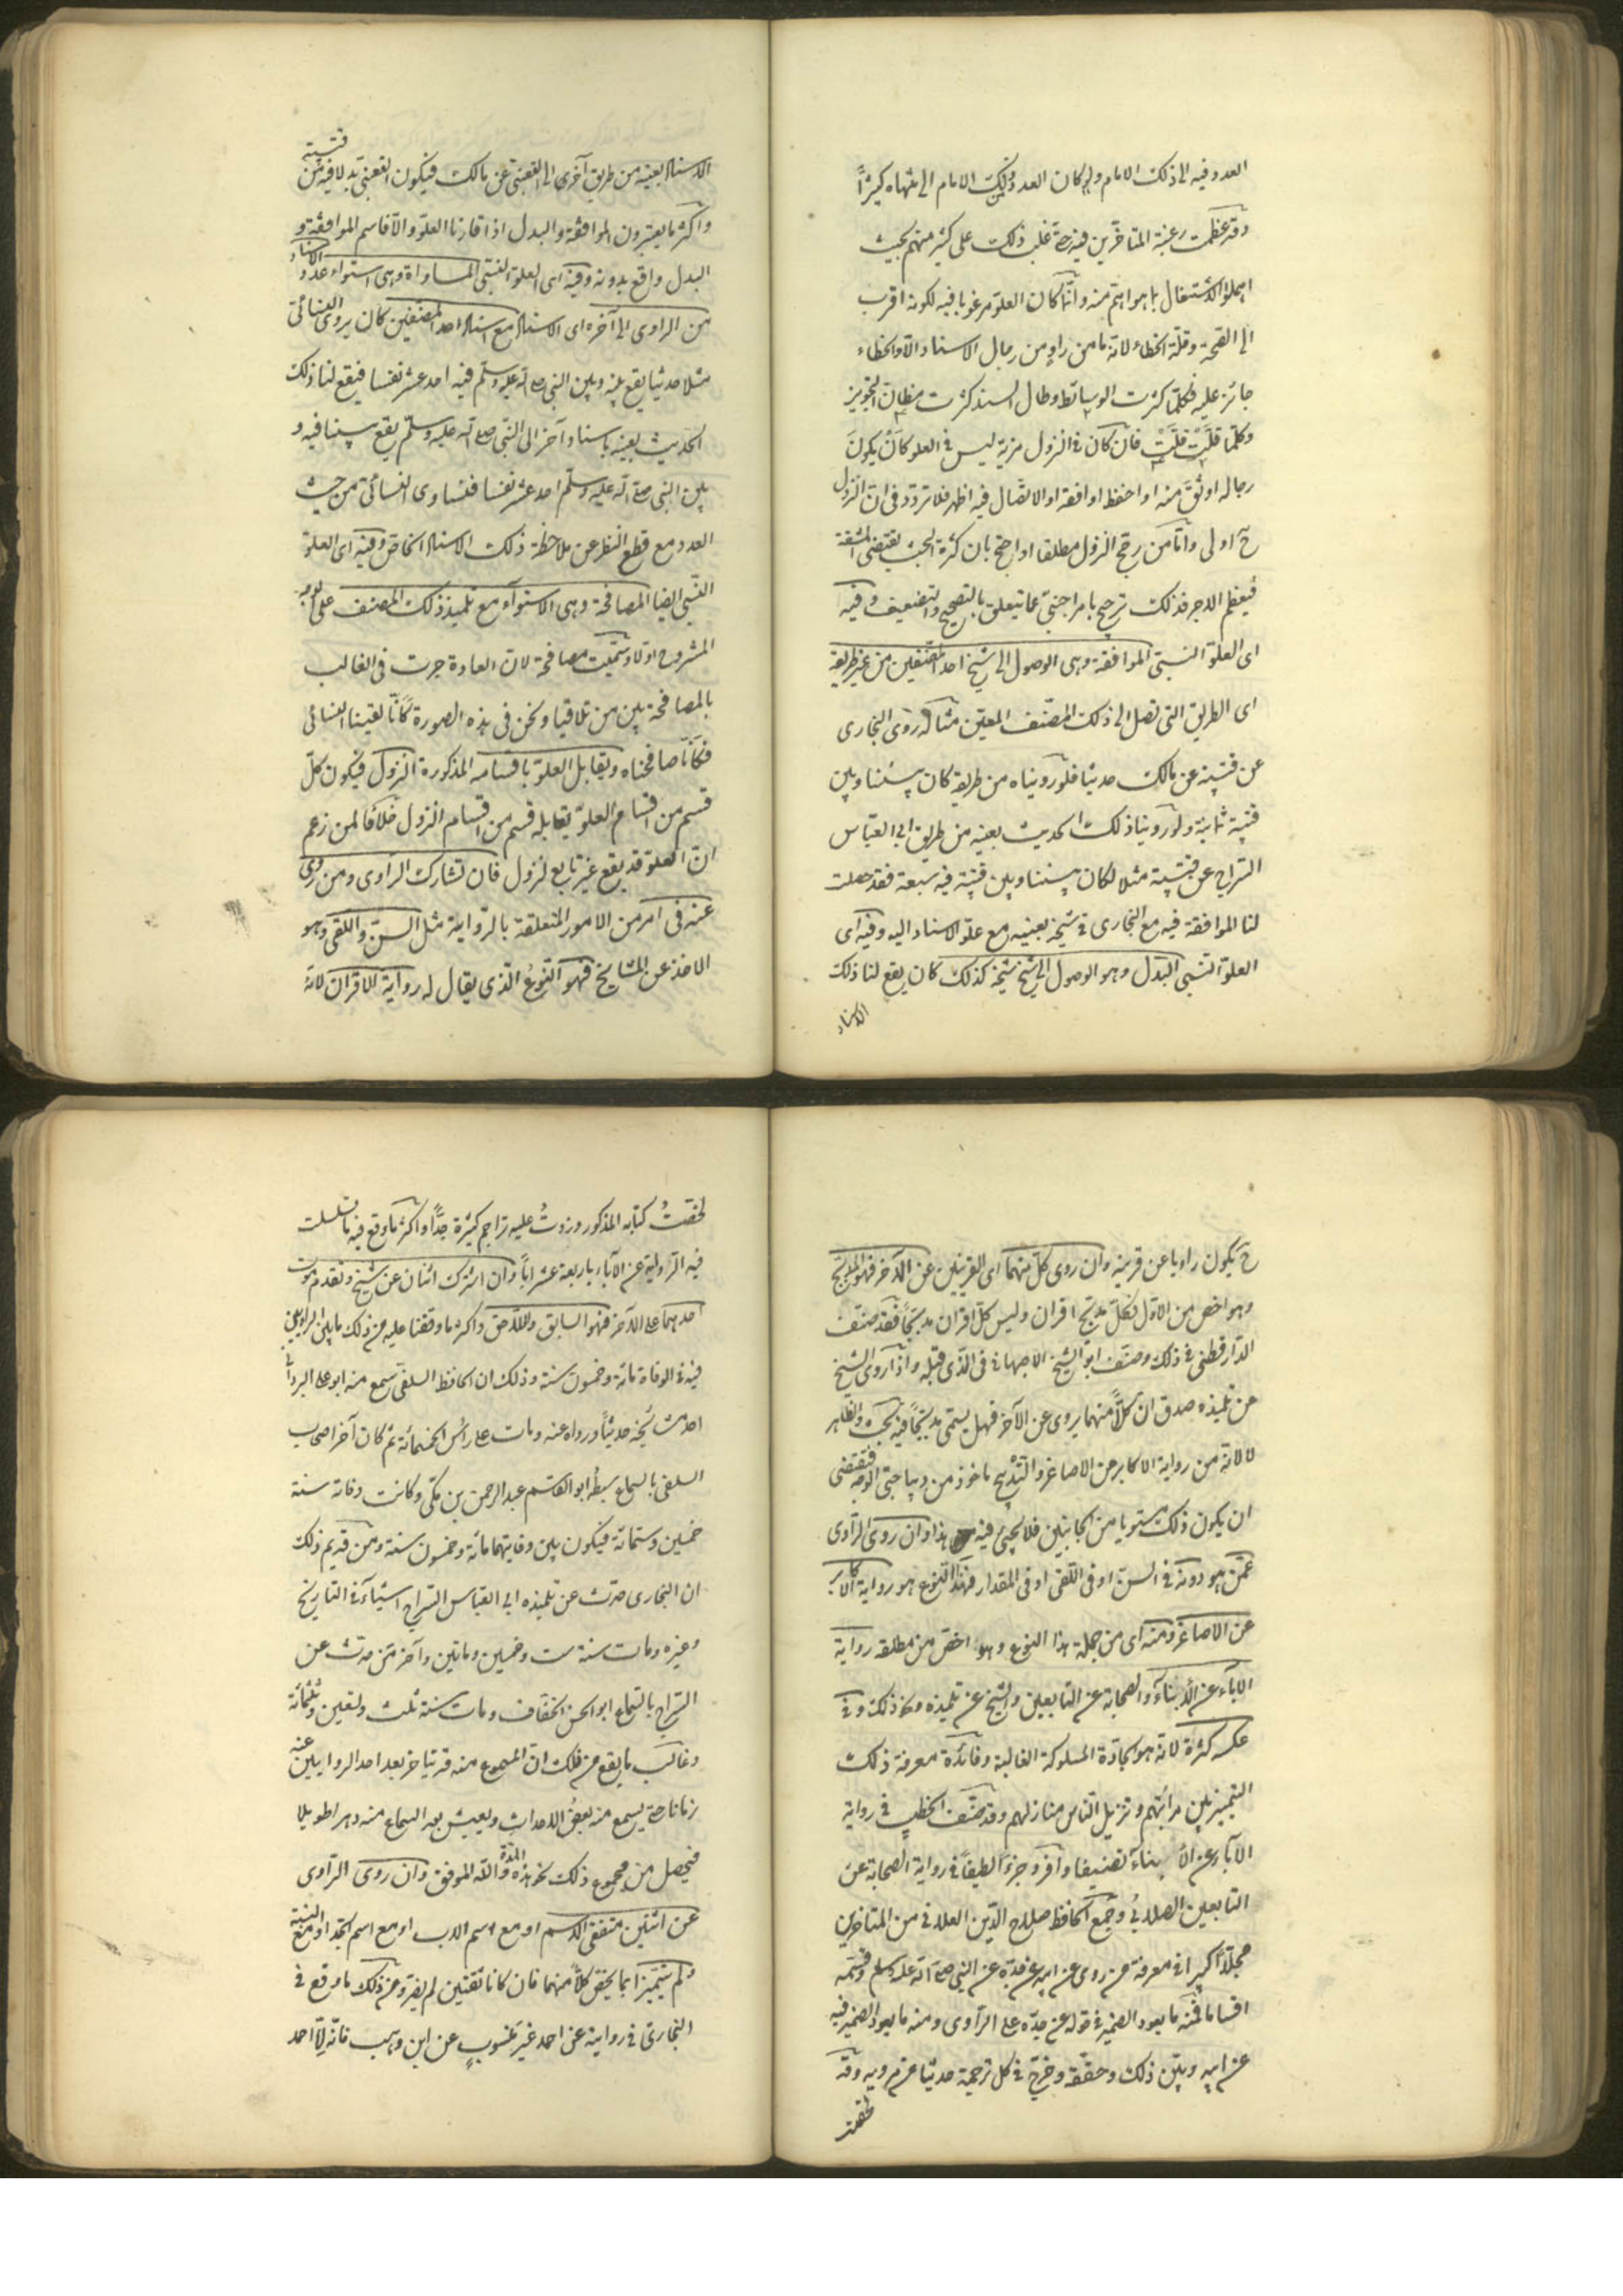 العدد فيه الى ذلك الامام ولو كان العدد من ذلك الامام الى منتهاه كثيرًا
وقد عظمت رغبة المتاخرين فيه حتى غلب ذلك على كثير منهم بحيث
اهملوا الاشتغال بما هو اهم منه وانّما كان العلوّ مرغوبا فيه لكونه اقرب
الى الصحة وقلّة الخطاء لانه ما من راوٍ من رجال الاسناد الّا والخطاء
جائز عليه فكلّما كثرت الوسائط وطال السند كثرت مظان التجويز
وكلّما قلّت قلّت فان كان في النزول مزية ليس في العلو كانْ يكونَ
رجاله اوثق منه او احفظ او افقه او الاتصال فيه اظهر فلا تردّد في انّ النزول
ح اولى وامّا من رجّح النزول مطلقا واحتج بان كثرة البحث تقتضى المشقة
فيعظم الاجر فذلك ترجيح بامر اجنبيّ عما يتعلق بالتصحيح والتضعيف وفيه
اى العلوّ النسبى الموافقة وهى الوصول الى شيخ احد المصنفين من غير طريقه
اى الطريق التى تصل الى ذلك المصنّف المعيّن مثاله روى البخارى
عن قتيبة عن مالك حديثا فلو رويناه من طريقه كان بيننا وبين
قتيبة ثمانية ولو روينا ذلك الحديث بعينه من طريق ابى العبّاس
السّراج عن قتيبة مثلا لكان بيننا وبين قتيبة فيه سبعة فقد حصلت
لنا الموافقة فيه مع البخارى في شيخه بعينه مع علوّ الاسناد اليه وفيه اى
العلوّ النسبى البدل وهو الوصول الى شيخ شيخه كذلك كان يقع لنا ذلك
الاسناد
الاسناد بعينه من طريق آخرى الى القعنبيّ عن مالك فيكون القعنبيّ بدلا فيه من قتيبة
واكثر ما يعتبرون الموافقة والبدل اذا قارنا العلوّ والّا فاسم الموافقة و
البدل واقع بدونه وفيه اى العلوّ النسبى المساواة وهى استواء عدد الاسناد
من الراوى الى آخره اى الاسناد مع اسناد احد المصنّفين كان يروى النسائى
مثلا حديثا يقع بينه وبين النبى صلى الله عليه وسلّم فيه احد عشر نفسا فيقع لنا ذلك
الحديث بعينه باسناد آخر الى النبى صلى الله عليه وسلّم يقع بيننا فيه و
بين النبى صلى الله عليه وسلّم احد عشر نفسا فنساوى النسائى من حيث
العدد مع قطع النظر عن ملاحظة ذلك الاسناد الخاصّ وفيه اى العلوّ
النّسبى ايضا المصافحة وهى الاستوآء مع تلميذ ذلك المصنف على الوجه
المشروح اوّلا وسمّيت مصافحة لان العادة جرت في الغالب
بالمصافحة بين من تلاقيا ونحن في هذه الصورة كانّا لقينا النسائى
فكانّا صافحناه ويقابل العلوّ باقسامه المذكورة النزول فيكون كلّ
قسم من اقسام العلوّ يقابله قسم من اقسام النزول خلافا لمن زعم
انّ العلوّ قد يقع غير تابع لنزول فان تشارك الرّاوى ومن روى
عنه في امر من الامور المتعلقة بالرّواية مثل السنّ واللّقى وهو
الاخذ عن المشايخ فهو النّوع الّذى يقال له رواية الاقران لانّه
ح يكون راويا عن قرينه وان روى كلّ منهما اى القرينين عن الآخر فهو المدبّج
وهو اخصّ من الاوّل فكلّ مدبّج اقران وليس كلّ اقران مدبّجًا فقد صنّف
الدّارقطنى في ذلك وصنّف ابو الشيخ الاصبهانى في الّذى قبله واذا روى الشيخ
عن تلميذه صدق ان كلّاً منهما يروى عن الآخر فهل يسمّى مدبّجًا فيه بحث والظاهر
لا لانه من رواية الاكابر عن الاصاغر والتدبيج ماخوذ من ديباجتى الوجه فيقتضى
ان يكون ذلك مستويا من الجانبين فلا يجئ فيه هذا وان روى الرّاوى
عمّن هو دونه في السنّ او في اللّقى او في المقدار فهذا النّوع هو رواية الاكابر
عن الاصاغر ومنه اى من جملة هذا النوع وهو اخصّ من مطلقه رواية
الآباء عن الابناء والصحابة عن التابعين والشيخ عن تلميذه ونحو ذلك وفى
عكسه كثرة لانه هو الجادّة المسلوكة الغالبة وفائدة معرفة ذلك
التمييز بين مراتبهم وتنزيل النّاس منازلهم وقد صنّف الخطيب في رواية
الآباء عن الابناء تصنيفا وافرد جزءًا لطيفًا في رواية الصحابة عن
التابعين الصلائى وجمع الحافظ صلاح الدّين العلائى من المتاخرين
مجلّدًا كبيرا في معرفة من روى عن ابيه عن جدّه عن النبى صلى الله عليه وسلم وقسّمه
اقساما فمنه ما يعود الضمير في قوله عن جدّه على الرّاوى ومنه ما يعود الضمير فيه
عن ابيه وبيّن ذلك وحقّقه وخرّج في كل ترجمة حديثا من مرويه وقد
لخّصت
لخّصتُ كتابه المذكور وزدتُ عليه تراجم كثيرة جدًّا واكثر ما وقع فيه ما تسلسلت
فيه الرّواية عن الآباء باربعة عشر اباً وان اشترك اثنان عن شيخ وتقدم موت
احدهما على الآخر فهو السابق واللّاحق واكثر ما وقفنا عليه من ذلك ما بين الراويين
فيه في الوفاة مائة وخمسون سنة وذلك ان الحافظ السلفى سمع منه ابو على البردانى
احد مشايخه حديثًا ورواه عنه ومات على راس الخمسمائة ثم كان آخر اصحاب
السلفى بالسماع سبطُه ابو القاسم عبد الرحمن بن مكّى وكانت وفاته سنة
خمسين وستمائة فيكون بين وفاتيهما مائة وخمسون سنة ومن قديم ذلك
ان البخارى حدّث عن تلميذه ابى العباس السّراج اشياء في التاريخ
وغيره ومات سنة ست وخمسين ومائتين وآخر من حدّث عن
السّراج بالسّماع ابو الحسن الخفّاف ومات سنة ثلث وتسعين وثلثمائة
وغالب ما يقع من ذلك انّ المسموع منه قد يتاخر بعد احد الراويين عنه
زمانا حتى يسمع منه بعضُ الاحداث ويعيش بعد السماع منه دهرا طويلا
فيحصل من مجموع ذلك نحو هذه المدّة واللّه الموفق وان روى الرّاوى
عن اثنين متفقى الاسم او مع اسم الاب او مع اسم الجد او مع النسبة
ولم يتميّزا بما يخصّ كلّاً منهما فان كانا ثقتين لم يضرّ ومن ذلك ما وقع في
البخارىّ في روايته عن احمد غيرَ منسوبٍ عن ابن وهب فانّه امّا احمد